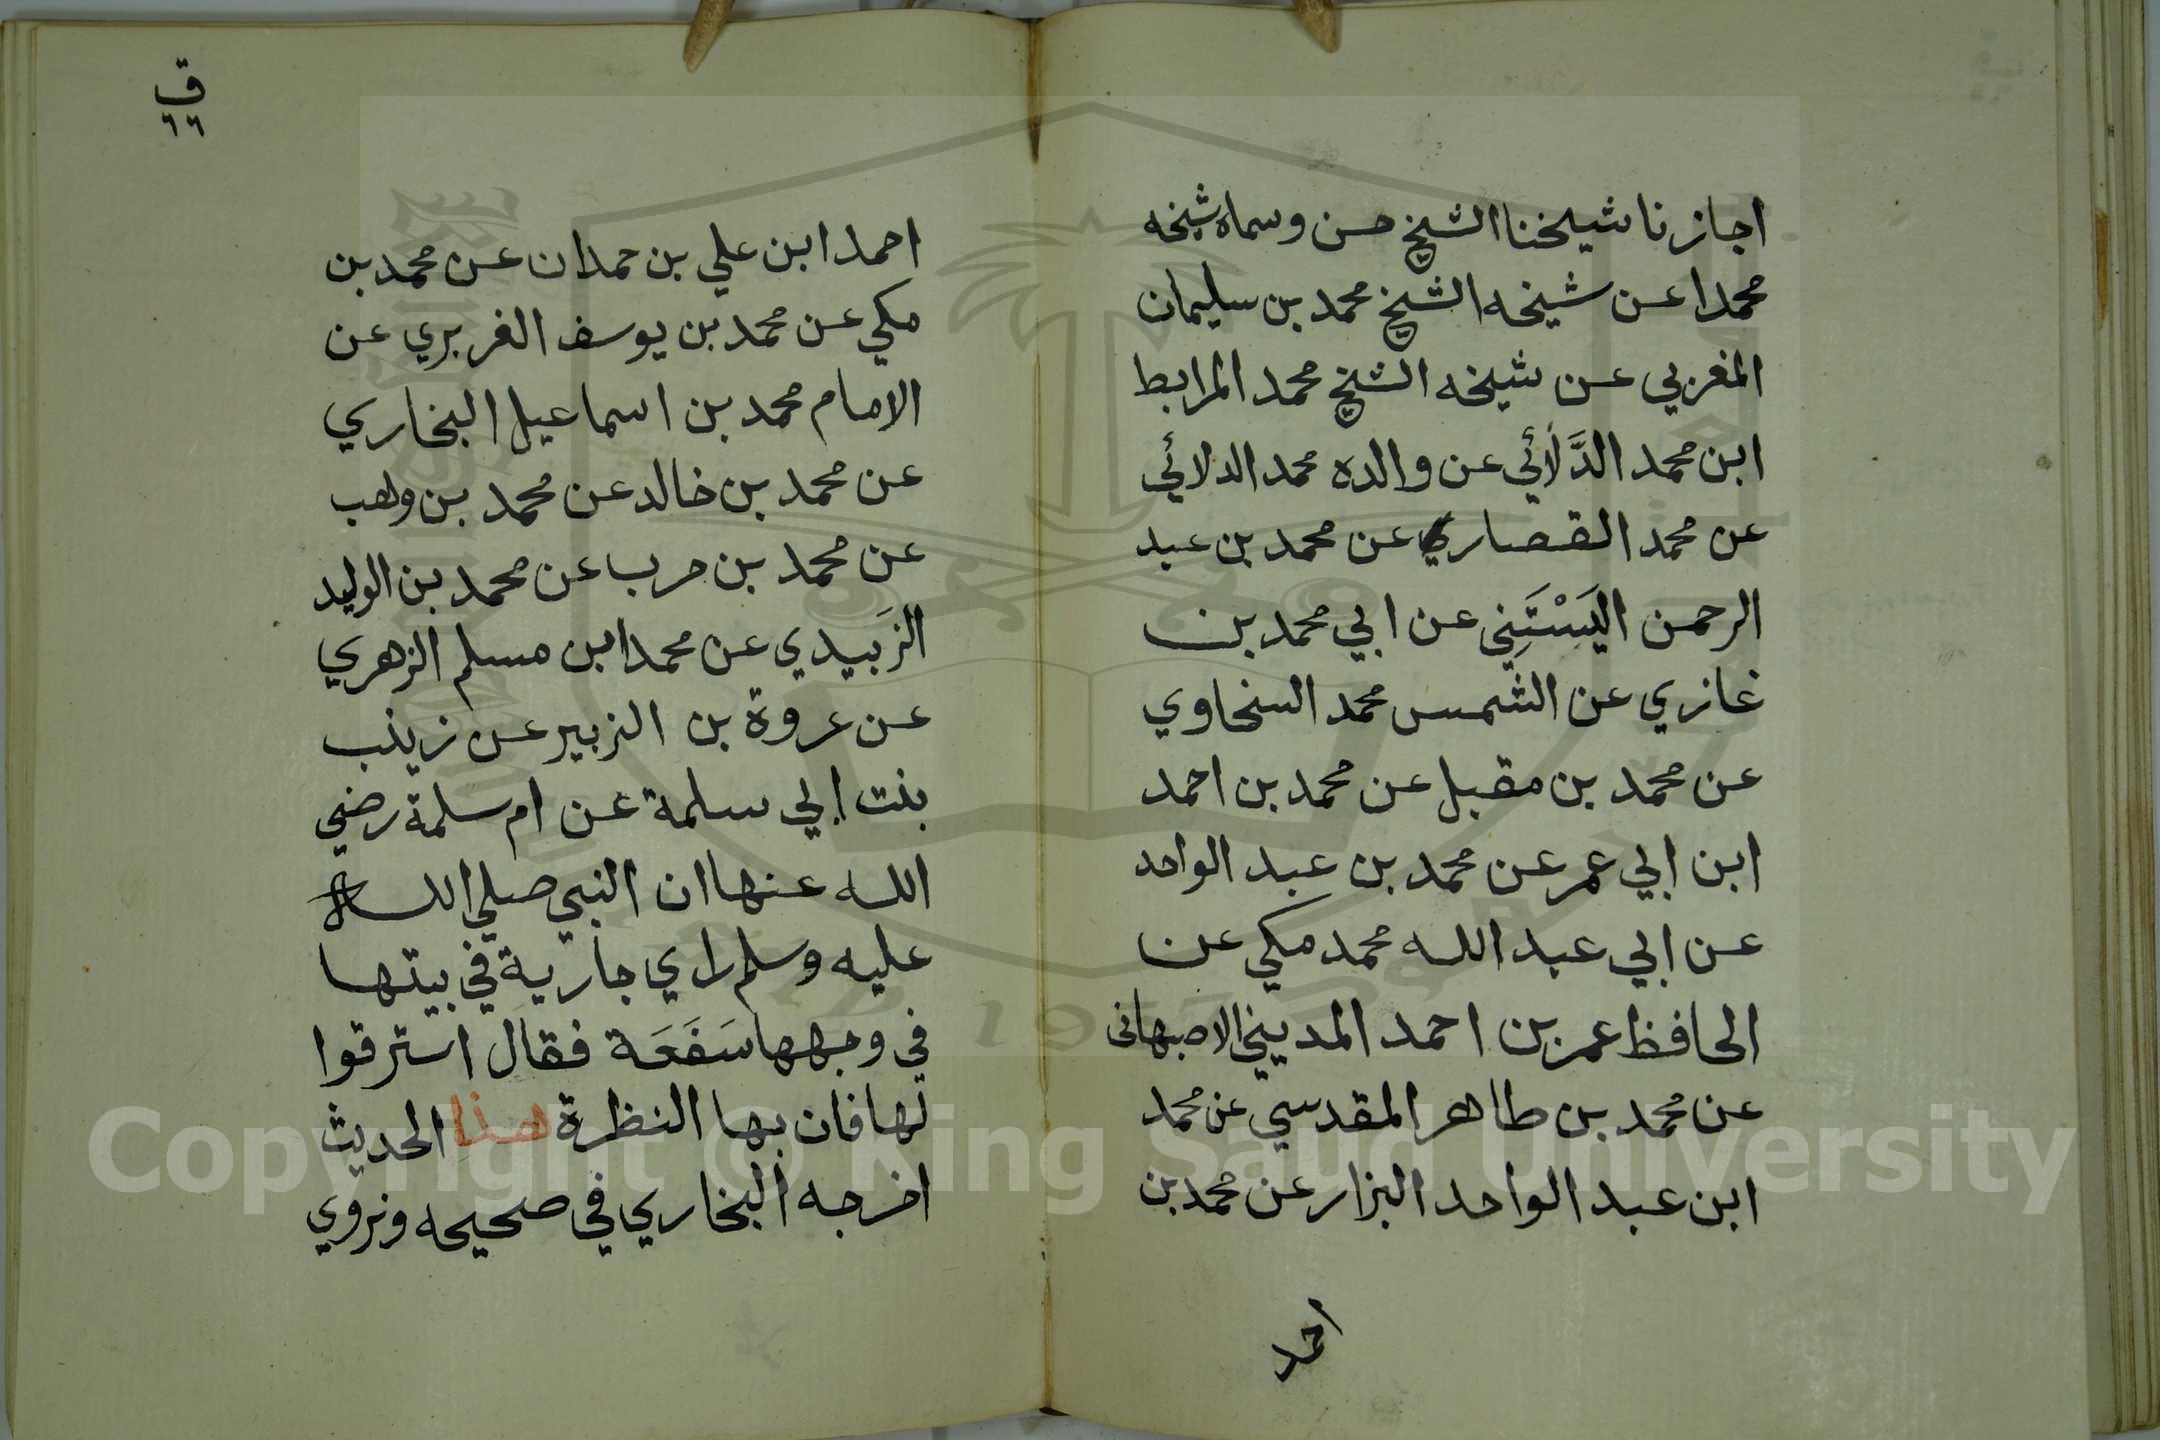 اجازنا شيخنا الشيخ حسن وسماه شيخه
محمدا عن شيخه الشيخ محمد بن سليمان
المغربي عن شيخه الشيخ محمد المرابط
ابن محمد الدَّلَائي عن والده محمد الدلائي
عن محمد القصاري عن محمد بن عبد
الرحمن اليَسْتَنِي عن ابي محمد بن
غازي عن الشمس محمد السخاوي
عن محمد بن مقبل عن محمد بن احمد
ابن ابي عمر عن محمد بن عبد الواحد
عن ابي عبد الله محمد مكي عن
الحافظ عمر بن احمد المديني الاصبهانى
عن محمد بن طاهر المقدسي عن محمد
ابن عبد الواحد البزار عن محمد بن
احمد
احمد ابن علي بن حمدان عن محمد بن
مكي عن محمد بن يوسف الفربري عن
الامام محمد بن اسماعيل البخاري
عن محمد بن خالد عن محمد بن وهب
عن محمد بن حرب عن محمد بن الوليد
الزَبيدي عن محمد ابن مسلم الزهري
عن عروة بن الزبير عن زينب
بنت ابي سلمة عن ام سلمة رضي
الله عنها ان النبي صلي الله
عليه وسلم راي جارية في بيتها
في وجهها سَفَعَة فقال استرقوا
لها فان بها النظرة هذا الحديث
اخرجه البخاري في صحيحه ونروي
Copyright © King Saud University
1957